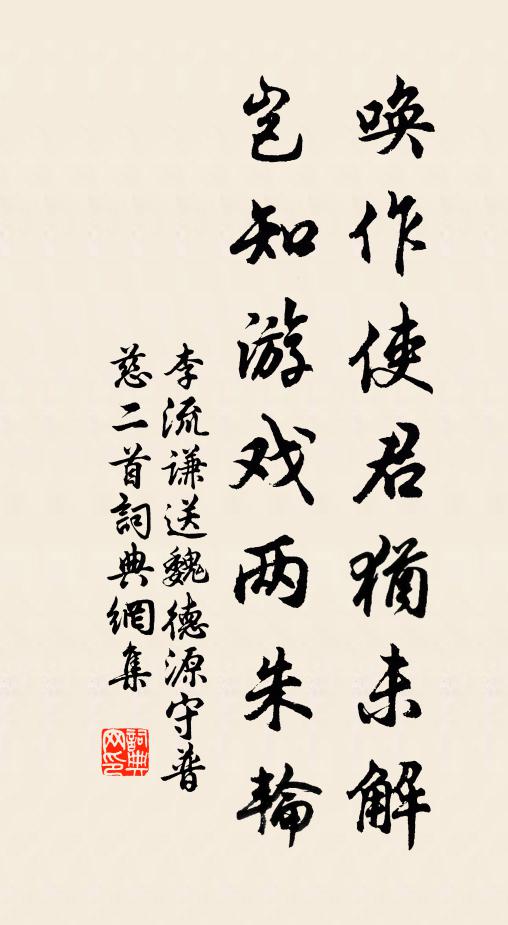 唤作使君猶未解
岂知游戏两朱輪
李流谦送魏德源守普
慈二首詞典網集
詞典网印